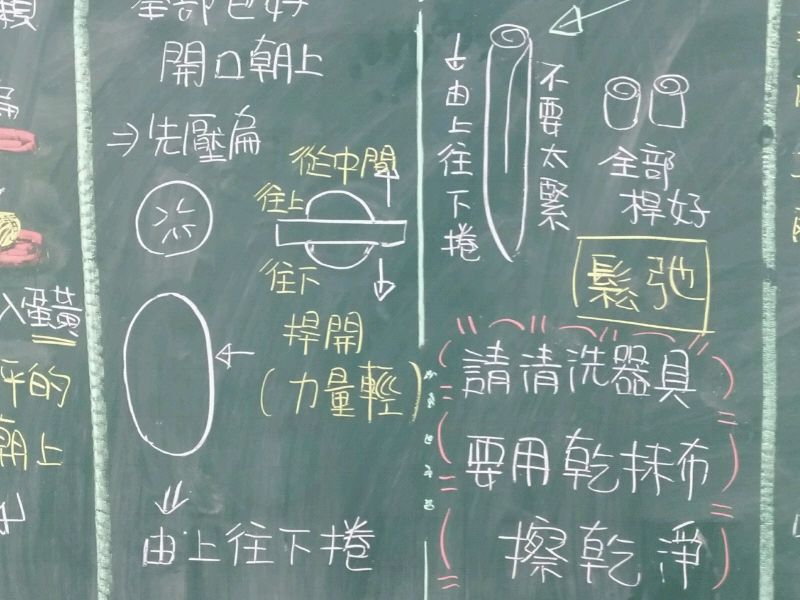 入蛋黃
平的
朝上
全部包好
開口朝上
⇒先壓扁
從中間
往上
往下
捍開
(力量輕)
由上往下捲
由上往下捲
不要太緊
全部
桿好
鬆弛
請清洗器具
要用乾抹布
擦乾淨